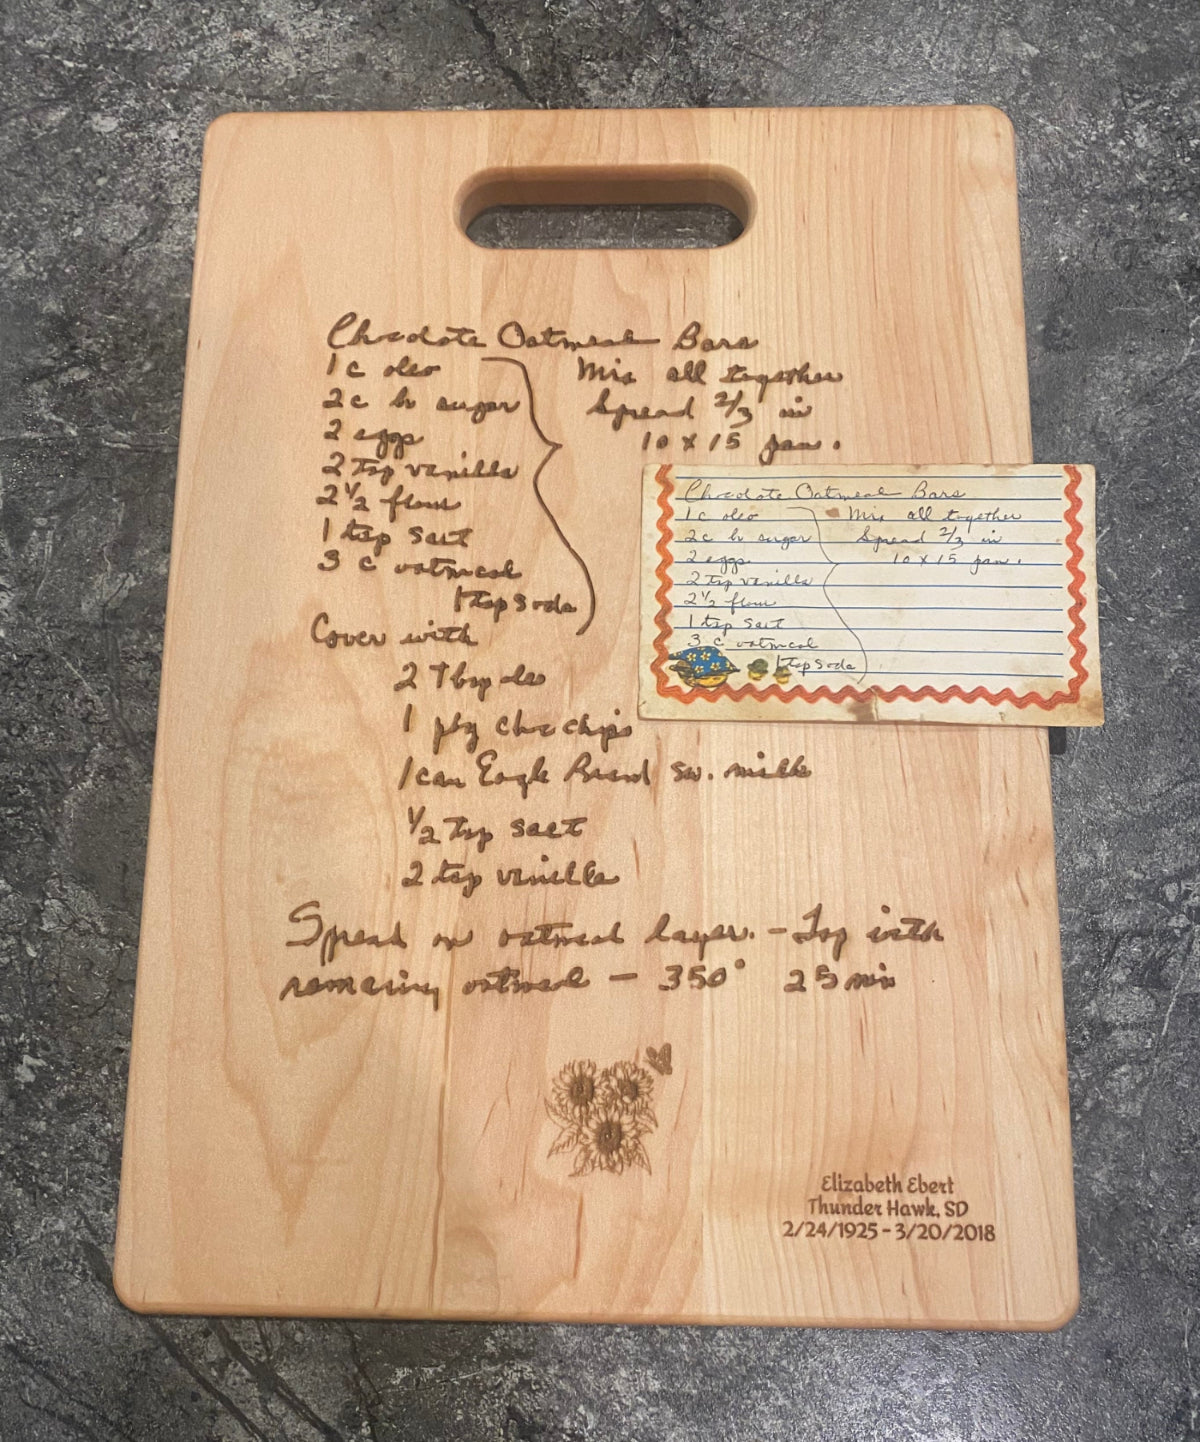 Chocolate Oatmeal Bars
1 c oleo
2 c br sugar
2 eggs
2 tsp vanilla
2 1/2 flour
1 tsp salt
3 c oatmeal
1 tsp soda
Mix all together
Spread 2/3 in
10 x 15 pan.
Cover with
2 Tbsp oleo
1 pkg choc chips
1 can Eagle Brand sw. milk
1/2 tsp salt
2 tsp vanilla
Spread on oatmeal layer. - Top with
remaining oatmeal - 350° 25 min
Elizabeth Ebert
Thunder Hawk, SD
2/24/1925 - 3/20/2018
Chocolate Oatmeal Bars
1 c oleo
2 c br sugar
2 eggs
2 tsp vanilla
2 1/2 flour
1 tsp salt
3 c oatmeal
1 tsp soda
Mix all together
Spread 2/3 in
10 x 15 pan.